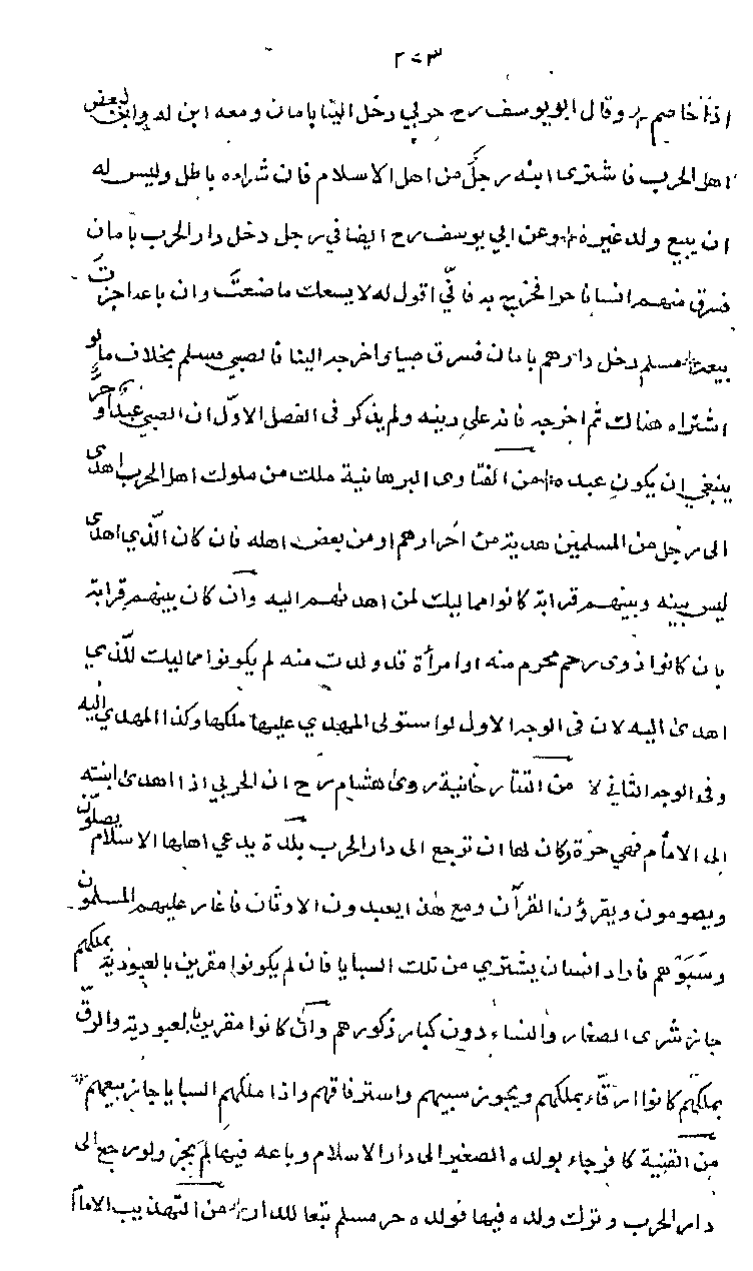 ٢٠٣
اذا خاصم وقال ابو يوسف رح حربي دخل الينا بامان ومعه ابن له وابن لبعض
اهل الحرب فاشترى ابنه رجلٌ من اهل الاسلام فان شراءه باطل وليس له
ان يبيع ولد غيره وعن ابي يوسف رح ايضا في رجل دخل دار الحرب بامان
فسرق منهم انسانا حرا فخرج به فاني اقول له لا يسعك ما صنعتَ وان باعه اجزتَ
بيعه مسلم دخل دارهم بامان فسرق صبيا واخرجه الينا فالصبي مسلم بخلاف ما لو
اشتراه هناك ثم اخرجه فانه على دينه ولم يذكر فى الفصل الاوّل ان الصبي عبدٌ او حرٌّ
ينبغي ان يكون عبده من الفتاوى البرهانية ملك من ملوك اهل الحرب اهدى
الى رجل من المسلمين هدية من احرارهم او من بعض اهله فان كان الّذي اهدى
ليس بينه وبينهم قرابة كانوا مماليك لمن اهدتهم اليه وان كان بينهم قرابة
بان كانوا ذوى رحم محرم منه او امرأة قد ولدت منه لم يكونوا مماليك للّذي
اهدى اليه لان فى الوجه الاول لو استولى المهدي عليها ملكها وكذا المهدي اليه
وفى الوجه الثاني لا من التتارخانية روى هشام رح ان الحربي اذا اهدى ابنته
الى الامام فهي حرة وكان لها ان ترجع الى دار الحرب بلدة يدعي اهلها الاسلام يصلّون
ويصومون ويقرؤن القرآن ومع هذا يعبدون الاوثان فاغار عليهم المسلمون
وسَبَوْهم فاراد انسان يشتري من تلك السبايا فان لم يكونوا مقرين بالعبودية بملكهم
جاز شرى الصغار والنساء دون كبار ذكورهم وان كانوا مقرين بالعبودية والرقّ
بملكهم كانوا ارقّاء بملكهم ويجوز سبيهم واسترقاقهم واذا ملكهم السبايا جاز بيعهم
من القنية كافر جاء بولده الصغير الى دار الاسلام وباعه فيها لم يجز ولو رجع الى
دار الحرب وترك ولده فيها فولده حر مسلم تبعا للدار من التهذيب الامام